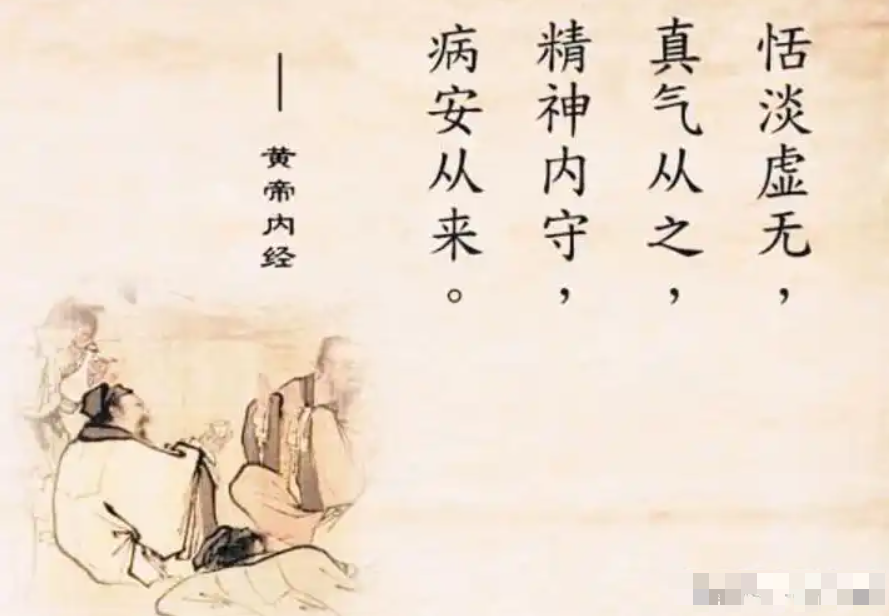 恬淡虚无，
真气从之，
精神内守，
病安从来。
——黄帝内经